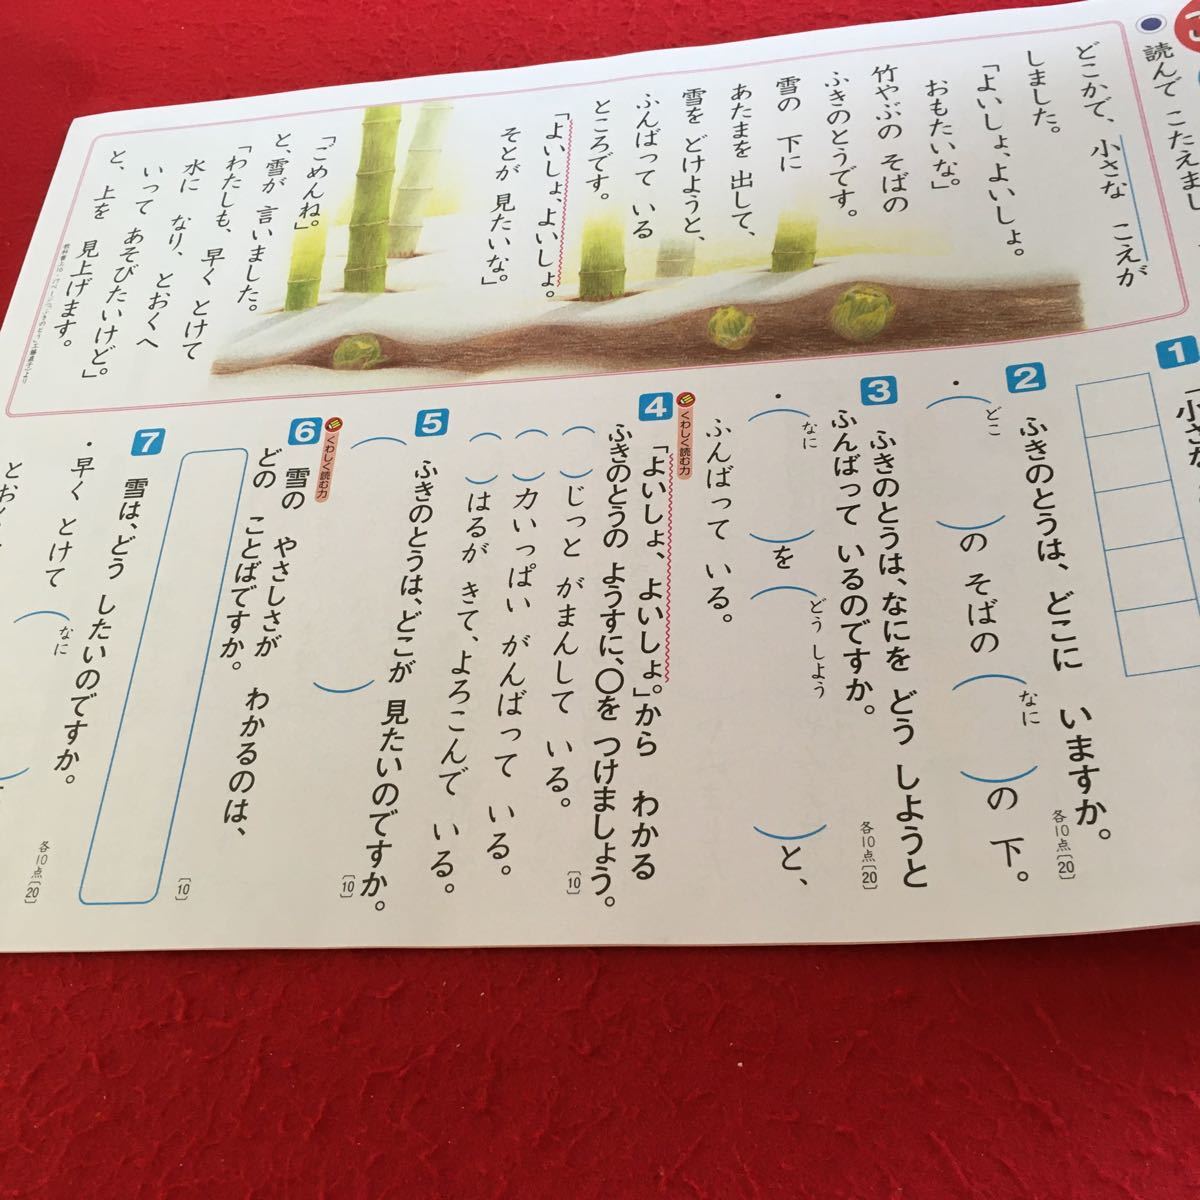 読んで こたえまし
どこかで、小さな こえが
しました。
「よいしょ、よいしょ。
おもたいな。」
竹やぶの そばの
ふきのとうです。
雪の 下に
あたまを 出して、
雪を どけようと、
ふんばって いる
ところです。
「よいしょ、よいしょ。
そとが 見たいな。」
「ごめんね。」
と、雪が 言いました。
「わたしも、早く とけて
水に なり、とおくへ
いって あそびたいけど。」
と、上を 見上げます。
1
「小さな
2 ふきのとうは、どこに いますか。
各10点[20]
・( どこ )の そばの ( なに )の 下。
3 ふきのとうは、なにを どう しようと
ふんばって いるのですか。
各10点[20]
・( なに )を ( どう しよう )と、
ふんばって いる。
くわしく読む力
4 「よいしょ、よいしょ。」から わかる
ふきのとうの ようすに、○を つけましょう。
[10]
( )じっと がまんして いる。
( )力いっぱい がんばって いる。
( )はるが きて、よろこんで いる。
5 ふきのとうは、どこが 見たいのですか。
[10]
( )
くわしく読む力
6 雪の やさしさが わかるのは、
どの ことばですか。
[10]
7 雪は、どう したいのですか。
各10点[20]
・早く とけて ( なに )